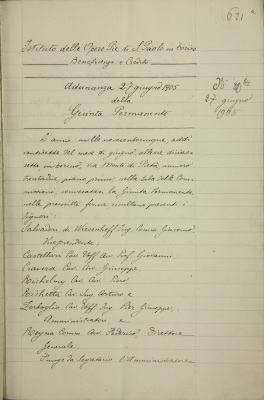 621
Istituto delle Opere Pie di S. Paolo in Torino
Beneficenza e Credito
Adunanza 27 giugno 1905
della
Giunta Permanente
27 giugno
1905
L'anno mille novecentocinque, addì
ventisette del mese di giugno, alle ore
in Torino, via Monte di Pietà, numero
trentadue, piano primo, nella Sala delle
convocatasi la Giunta Permanente
nelle prescritte forme, risultano presenti i
Signori:
Vicepresidente.
Castellari Cav. Uff. Av. Prof. Giovanni,
Cav. Av. Giuseppe,
Richolmy Cav. Av.
Richetta Cav. Ing. Arturo e
Zerboglio Cav. Uff. Ing. Giuseppe,
Amministratori e
Reyna Comm. Av. Federico, Direttore
Generale.
Funge da Segretario l'Amministratore